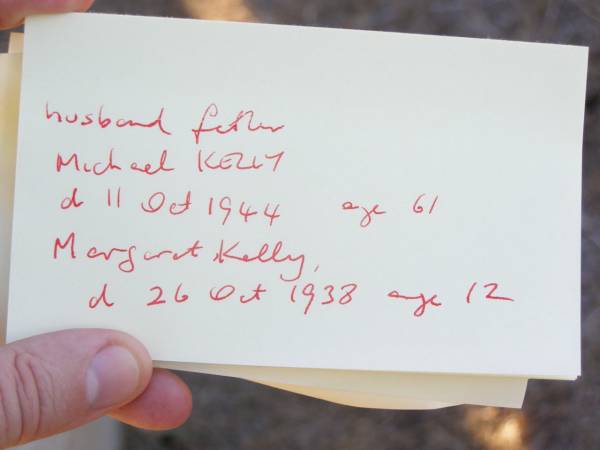 husband father
Michael KELLY
d 11 Oct 1944 age 61
Margaret Kelly,
d 26 Oct 1938 age 12